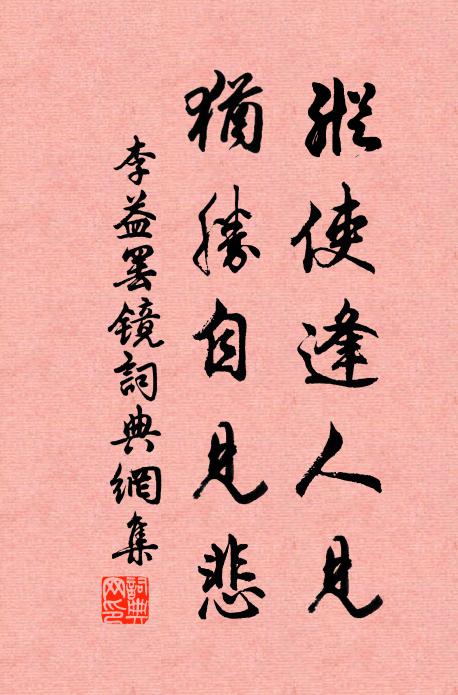 縱使逢人見
猶勝自見悲
李益罢鏡詞典網集
詞典
网印